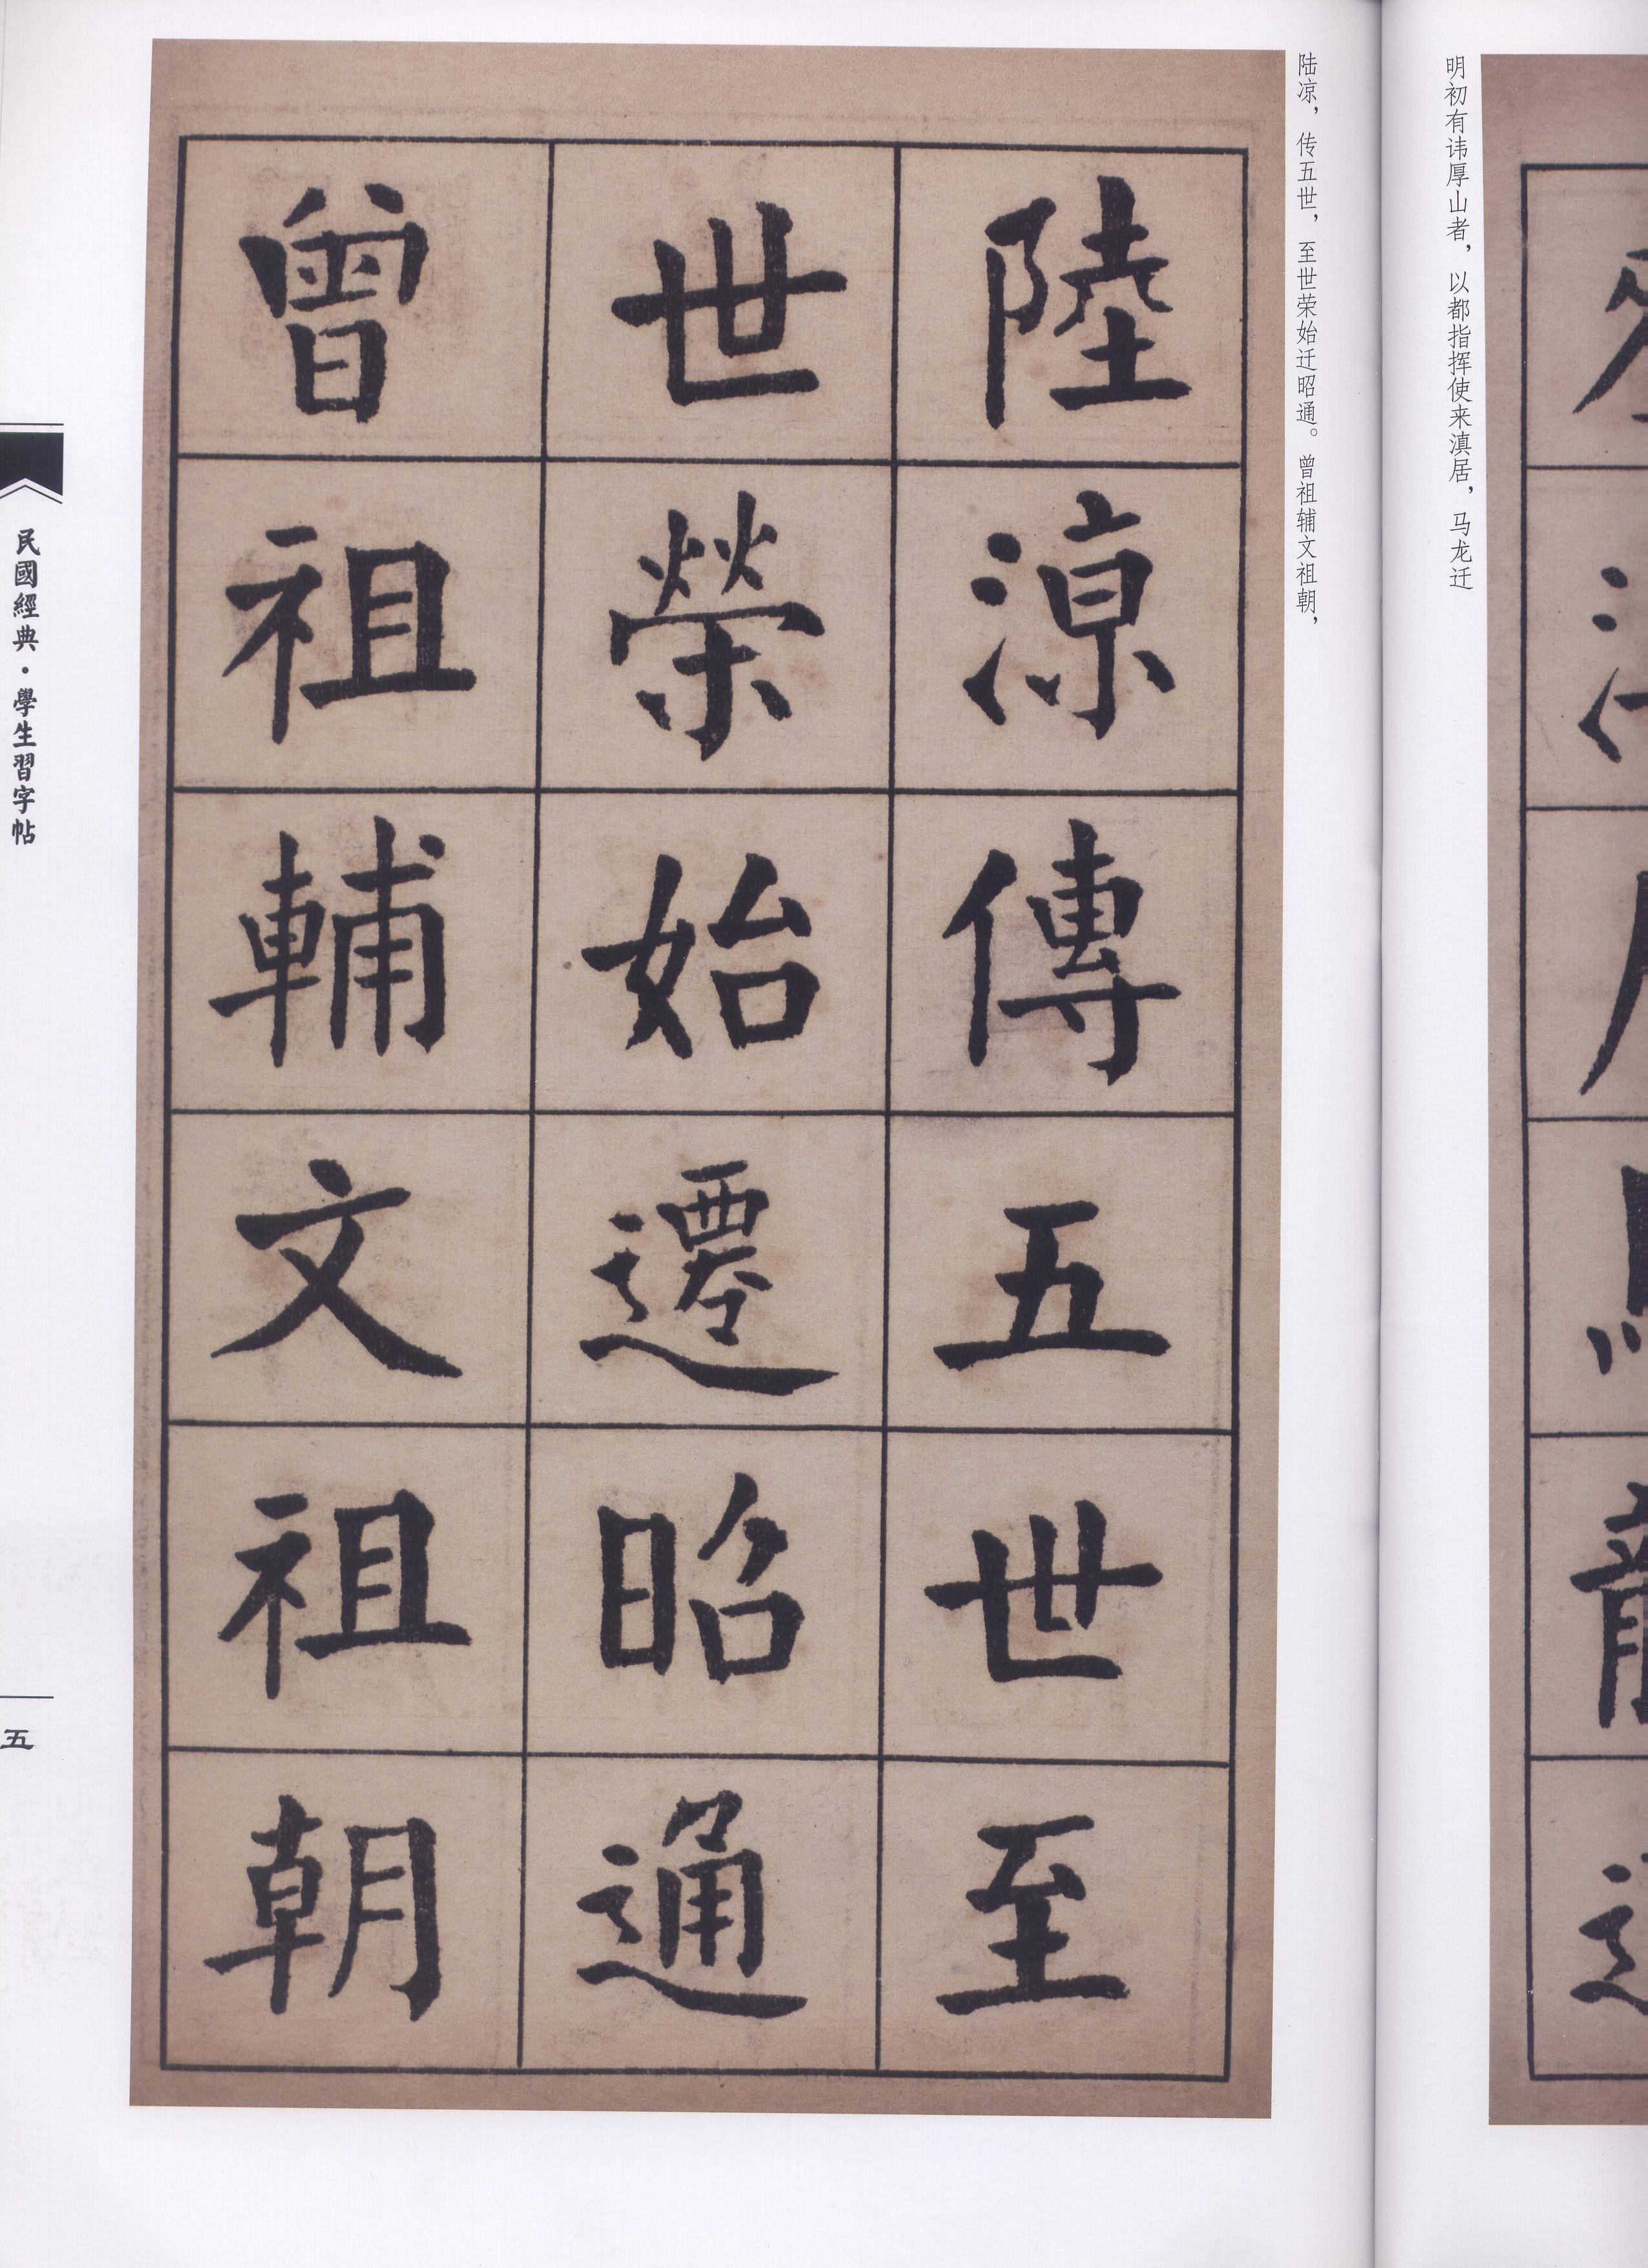 明初有讳厚山者，以都指挥使来滇居，马龙迁
陆凉，传五世，至世荣始迁昭通。曾祖辅文祖朝，
陸涼傳五世至
世榮始遷昭通
曾祖輔文祖朝
民國經典·學生習字帖
五